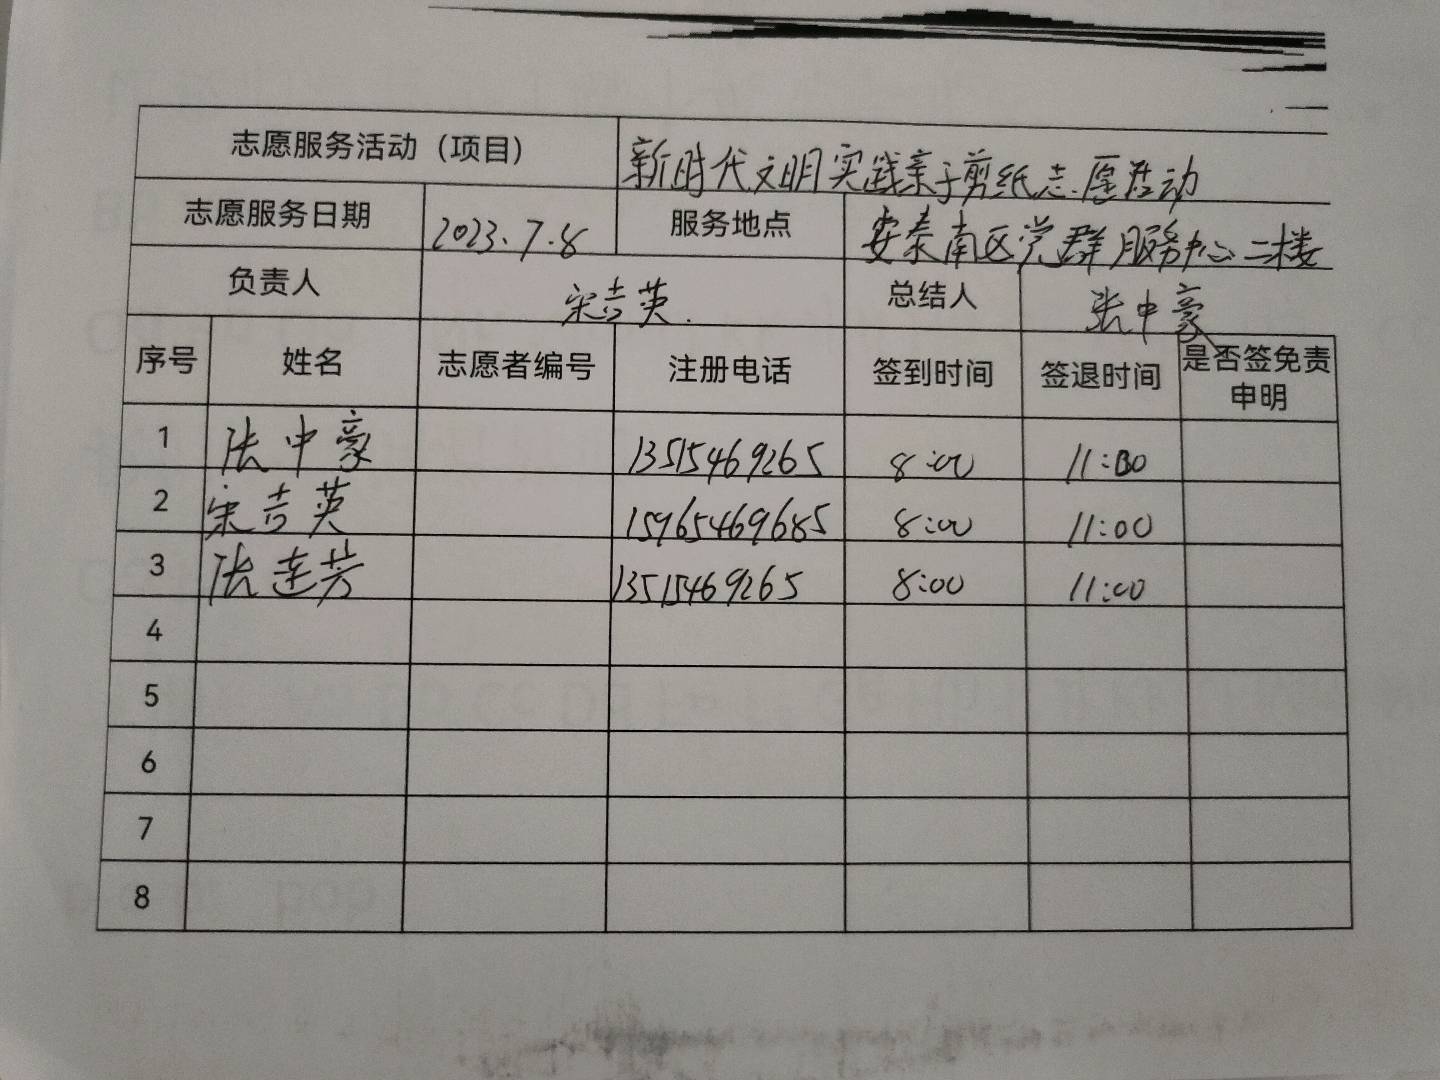 志愿服务活动（项目） 新时代文明实践亲子剪纸志愿活动
志愿服务日期 2023.7.8 服务地点 安泰南区党群服务中心二楼
负责人 宋吉英. 总结人 张中豪
序号 姓名 志愿者编号 注册电话 签到时间 签退时间 是否签免责申明
1 张中豪 13515469265 8:00 11:00
2 宋吉英 15965469685 8:00 11:00
3 张连芳 13515469265 8:00 11:00
4
5
6
7
8